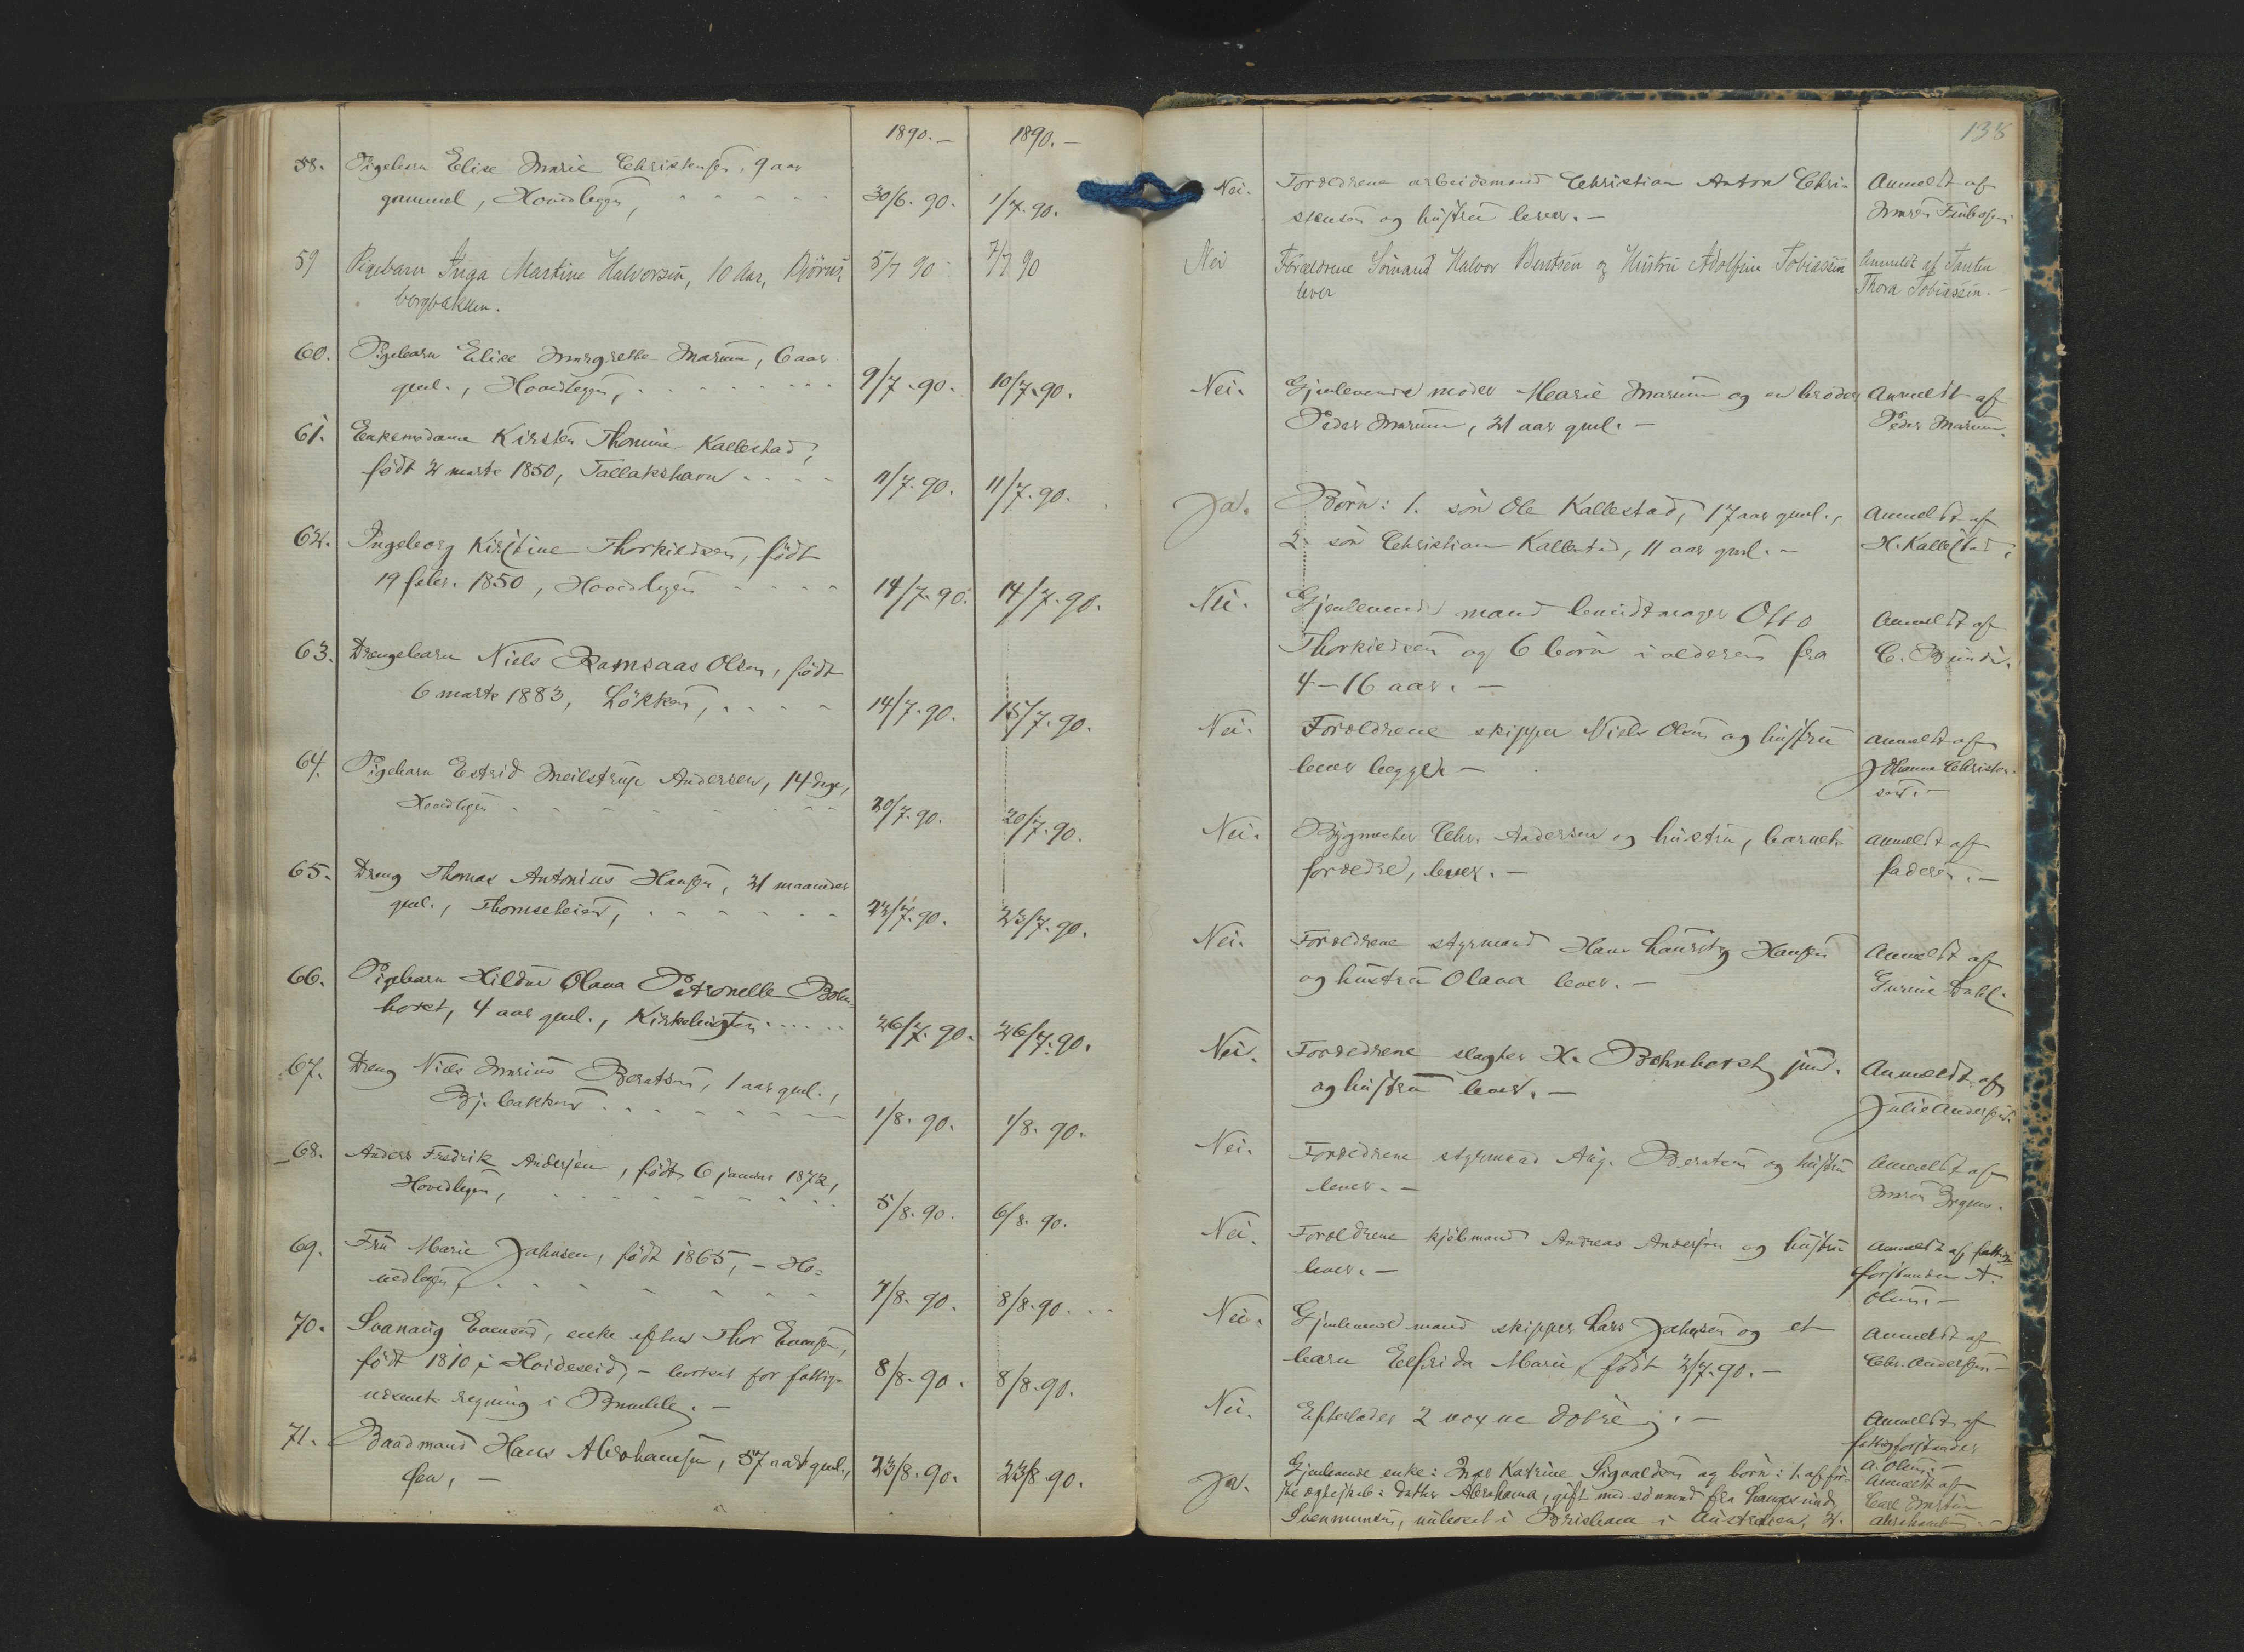 1890.— 1890.—
138
58. Pigebarn Elise Marie Christensen, 9 aar
gammel, Hovedbyen, 30/6. 90. 1/7. 90.
Nei. Forældrene arbeidsmand Christian Anton Chri-
stensen og hustru lever. —
Anmeldt af
59 Pigebarn Inga Martine Halvorsen, 10 Aar, Björns
bergbakken. 5/7 90 7/7 90
Nei Forældrene Sömand Halvor Bentsen og Hustru Adolfine Tobiassen
lever
Anmeldt af Tanten
Thora Tobiassen. —
60. Pigebarn Elise Margrethe Marum, 6 aar
gml., Hovedbyen, 9/7. 90. 10/7. 90.
Nei. Gjenlevende moder Marie Marum og en broder
Peder Marum, 21 aar gml. —
Anmeldt af
Peder Marum.
61. Enkemadame Kirsten Thomine Kallestad,
født 2 marts 1850, Tallakshavn 11/7. 90. 11/7. 90.
Ja. Börn: 1. sön Ole Kallestad, 17 aar gml.,
2. sön Christian Kallestad, 11 aar gml. —
Anmeldt af
H. Kallestad.
62. Ingeborg Kirstine Thorkildsen, født
19 febr. 1850, Hovedbyen 14/7. 90. 14/7. 90.
Nei. Gjenlevende mand bundtmager Otto
Thorkildsen og 6 börn i alderen fra
4–16 aar. —
Anmeldt af
63. Drengebarn Niels Ramsaas Olsen, født
6 marts 1883, Lökken, 14/7. 90. 15/7. 90.
Nei. Forældrene skipper Niels Olsen og hustru
lever begge. —
Anmeldt af
Johanne Christen-
sen. —
64. Pigebarn Estrid Meilstrup Andersen, 14 dage,
Hovedbyen 20/7. 90. 20/7. 90.
Nei. Bygmester Chr. Andersen og hustru, barnets
forældre, lever. —
Anmeldt af
faderen. —
65. Dreng Thomas Antonius Hansen, 21 maaneder
gml., Thomseheien, 23/7. 90. 23/7. 90.
Nei. Forældrene styrmand Hans Lauritz Hansen
og hustru Olava lever. —
Anmeldt af
Gurine Dahl.
66. Pigebarn Hildur Olava Petronelle Bohn-
horst, 4 aar gml., Kirkebugten 26/7. 90. 26/7. 90.
Nei. Forældrene slagter H. Bohnhorst jun.
og hustru lever. —
Anmeldt af
Julie Andersen.
67. Dreng Niels Marius Berntsen, 1 aar gml.,
Bj. bakken 1/8. 90. 1/8. 90.
Nei. Forældrene styrmand Aug. Berntsen og hustru
lever. —
Anmeldt af
68. Anders Fredrik Andersen, født 6 januar 1872,
Hovedbyen, 5/8. 90. 6/8. 90.
Nei. Forældrene kjöbmand Andreas Andersen og hustru
lever. —
Anmeldt af fattig-
forstander A.
Olsen. —
69. Fru Marie Jahnsen, født 1865, — Ho-
vedbyen, 7/8. 90. 8/8. 90.
Nei. Gjenlevende mand skipper Lars Jahnsen og et
barn Elfrida Marie, født 2/7. 90. —
Anmeldt af
Chr. Andersen —
70. Svanaug Evensen, enke efter Thor Evensen,
født 1810 i Hvideseid, — bortsat for fattig-
væsenets regning i Bamble. — 8/8. 90. 8/8. 90.
Nei. Efterlader 2 voxne dötre. —
Anmeldt af
fattigforstander
A. Olsen. —
71. Baadmand Hans Abrahamsen, 57 aar gml.,
23/8. 90. 23/8. 90.
Ja. Gjenlevende enke: Inger Katrine Sigvaldsen og börn: 1. af för-
ste ægteskab: datter Abrahama, gift med sömand fra Langesund
Svenmundsen, nu bosat i Brisbane i Australien, 2.
Anmeldt af
Carl Martin
Abrahamsen —